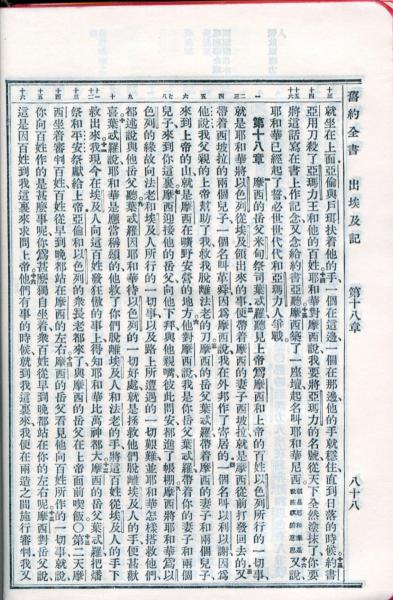 舊約全書　出埃及記　第十八章　八十八
就坐在上面亞倫與戶珥扶着他的手一個在這邊一個在那邊他的手就穩住直到日落的時候約書
亞用刀殺了亞瑪力王和他的百姓耶和華對摩西說我要將亞瑪力的名號從天下全然塗抹了你要
將這話寫在書上作記念又念給約書亞聽摩西築了一座壇起名叫耶和華尼西又說
耶和華已經起了誓必世世代代和亞瑪力人爭戰
第十八章
摩西的岳父米甸祭司葉忒羅聽見上帝為摩西和上帝的百姓以色列所行的一切事
就是耶和華將以色列從埃及領出來的事便帶着摩西的妻子西坡拉就是摩西從前打發回去的又
帶着西坡拉的兩個兒子一個名叫革舜因為摩西說我在外邦作了寄居的一個名叫以利以謝因為
他說我父親的上帝幫助了我救我脫離法老的刀摩西的岳父葉忒羅帶着摩西的妻子和兩個兒子
來到上帝的山就是摩西在曠野安營的地方他對摩西說我是你岳父葉忒羅帶着你的妻子和兩個
兒子來到你這裏摩西迎接他的岳父向他下拜與他親嘴彼此問安都進了帳棚摩西將耶和華為以
色列的緣故向法老和埃及人所行的一切事以及路上所遭遇的一切艱難並耶和華怎樣搭救他們
都述說與他岳父聽葉忒羅因耶和華待以色列的一切好處就是拯救他們脫離埃及人的手便甚歡
喜葉忒羅說耶和華是應當稱頌的他救了你們脫離埃及人和法老的手將這百姓從埃及人的手下
救出來我現今在埃及人向這百姓發狂傲的事上得知耶和華比萬神都大摩西的岳父葉忒羅把燔
祭和平安祭獻給上帝亞倫和以色列的衆長老都來了與摩西的岳父在上帝面前喫飯○第二天摩
西坐着審判百姓百姓從早到晚都站在摩西的左右摩西的岳父看見他向百姓所作的一切事就說
你向百姓作的是甚麼事呢你為甚麼獨自坐着衆百姓從早到晚都站在你的左右呢摩西對岳父說
這是因百姓到我這裏來求問上帝他們有事的時候就到我這裏來我便在兩造之間施行審判我又